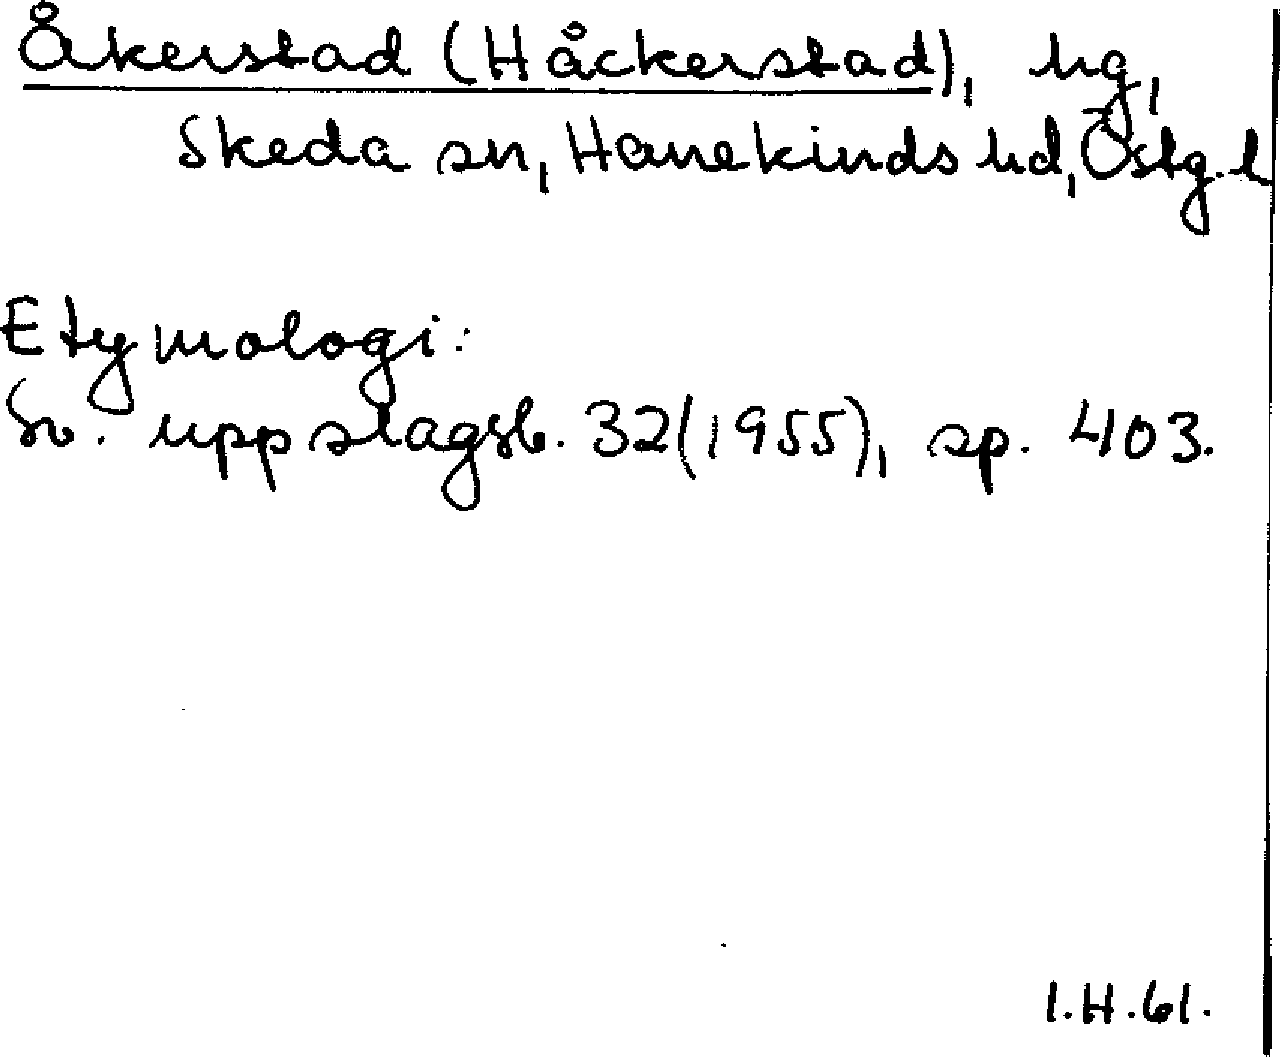 Åkerstad (Håckerstad), hg,
Skeda sn, Hanekinds hd, Östg. l
Etymologi:
Sv. uppslagsb. 32(1955), sp. 403.
I.H.61.